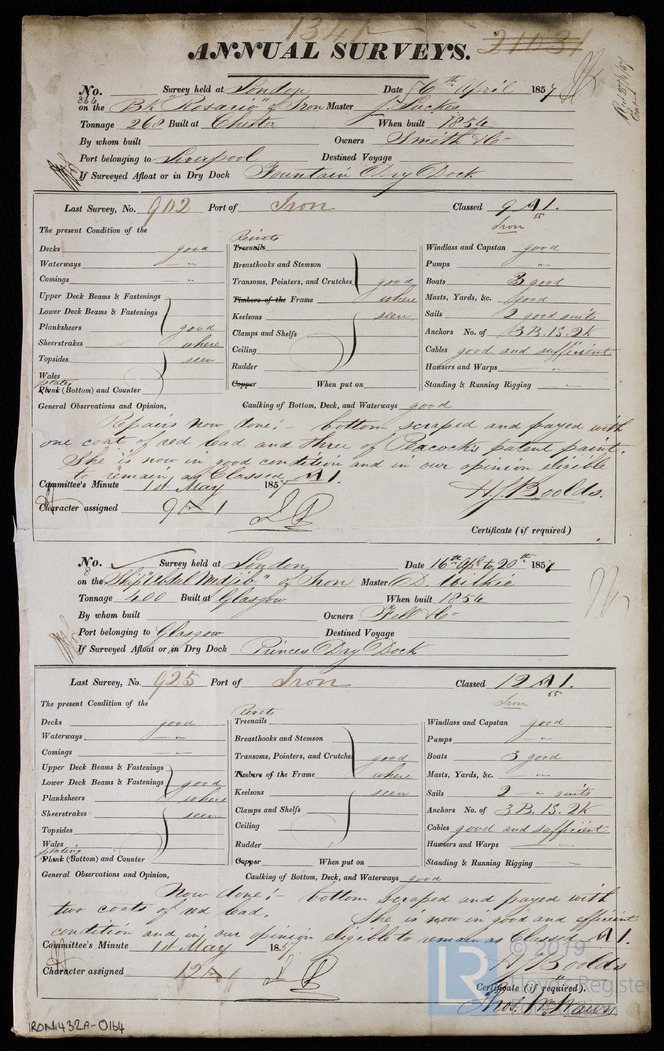 1341
21031
ANNUAL SURVEYS.
No. 364 Survey held at London Date 6th April 1857
on the Bk "Rosario" of Iron Master
Tonnage 260 Built at Chester When built 1856
By whom built Owners Smith & Co
Port belonging to Liverpool Destined Voyage
If Surveyed Afloat or in Dry Dock Fountain Dry Dock
Last Survey, No. 902 Port of Iron Classed 9 A 1. 55
Iron
The present Condition of the
Decks good
Waterways "
Comings "
Upper Deck Beams & Fastenings
Lower Deck Beams & Fastenings
Planksheers good
Sheerstrakes where
Topsides seen
Wales
Plank (Bottom) and Counter
Rivets
Treenails
Breasthooks and Stemson
Transoms, Pointers, and Crutches good
Timbers of the Frame where
Keelsons seen
Clamps and Shelfs
Ceiling
Rudder
Copper When put on
Windlass and Capstan good
Pumps "
Boats 3 good
Masts, Yards, &c. good
Sails 2 good suits
Anchors No. of 3 B. 1 S. 2 K
Cables good and sufficient
Hawsers and Warps
Standing & Running Rigging
General Observations and Opinion, Caulking of Bottom, Deck, and Waterways good
Repairs now done:- bottom scraped and payed with
one coat of red lead and three of Peacock's patent paint.
She is now in good condition and in our opinion eligible
to remain as Classed A 1.
Committee's Minute 1st May 1857
H. J. Boolds.
Character assigned 9 A 1
Certificate (if required)
No. Survey held at London Date 16th Apl to 20th 1857
on the Ship of Iron Master D. Wilkie
Tonnage 400 Built at Glasgow When built 1856
By whom built Owners Fell & Co
Port belonging to Glasgow Destined Voyage
If Surveyed Afloat or in Dry Dock Princes Dry Dock
Last Survey, No. 925 Port of Iron Classed 12 A 1. 55
Iron
The present Condition of the
Decks good
Waterways "
Comings
Upper Deck Beams & Fastenings
Lower Deck Beams & Fastenings good
Planksheers where
Sheerstrakes seen
Topsides
Wales
Plating
Plank (Bottom) and Counter
Rivets
Treenails
Breasthooks and Stemson
Transoms, Pointers, and Crutches good
Timbers of the Frame where
Keelsons seen
Clamps and Shelfs
Ceiling
Rudder
Copper When put on
Windlass and Capstan good
Pumps "
Boats 3 good
Masts, Yards, &c. "
Sails 2 " suits
Anchors No. of 3 B. 1 S. 2 K
Cables good and sufficient
Hawsers and Warps
Standing & Running Rigging
General Observations and Opinion, Caulking of Bottom, Deck, and Waterways good
Now done:- bottom scraped and payed with
two coats of red lead. She is now in good and efficient
condition and in our opinion eligible to remain as Classed A 1.
Committee's Minute 1st May 1857
H. J. Boolds
Character assigned 12 A 1
Certificate (if required).
IRON1432A-0164
LR
© 2019
Lloyd's Register